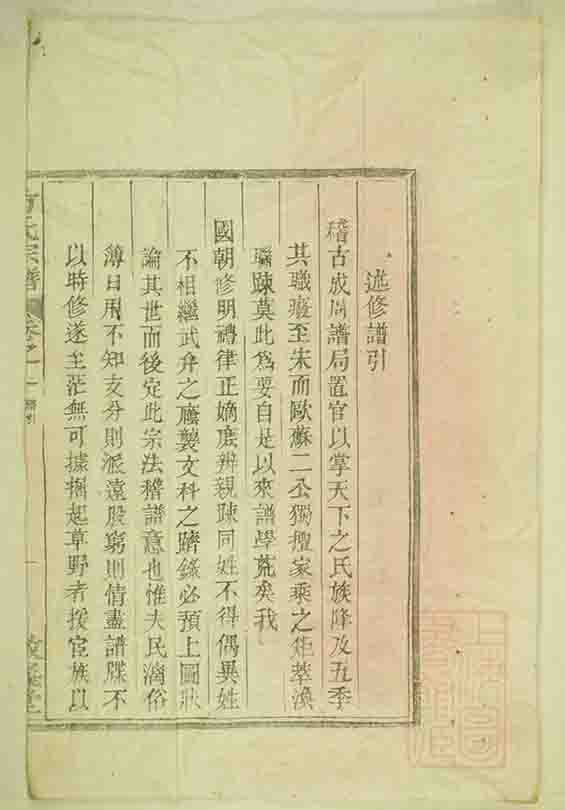 述修譜引
稽古成周譜局置官以掌天下之氏族降及五季
其職癈至宋而歐蘇二公獨擅家乘之矩萃渙
聯踈莫此爲要自是以來譜學荒矣我
國朝修明禮律正嫡庶辨親踈同姓不得偶異姓
不相繼武弁之廕襲文科之躋錄必預上圖狀
論其世而後定此宗法稽譜意也惟夫民漓俗
薄日用不知支分則派遠服窮則情盡譜牒不
以時修遂至茫無可據掘起草野者援宦族以
氏宗譜
卷之一
堂